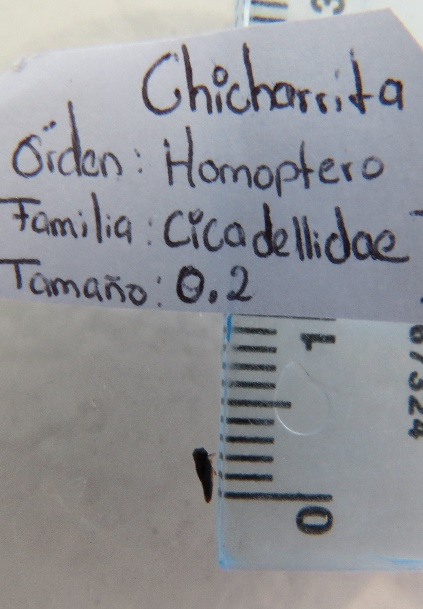 Chicharrita
Orden: Homoptero
Familia: Cicadellidae
Tamaño: 0.2
3
1
0
67324